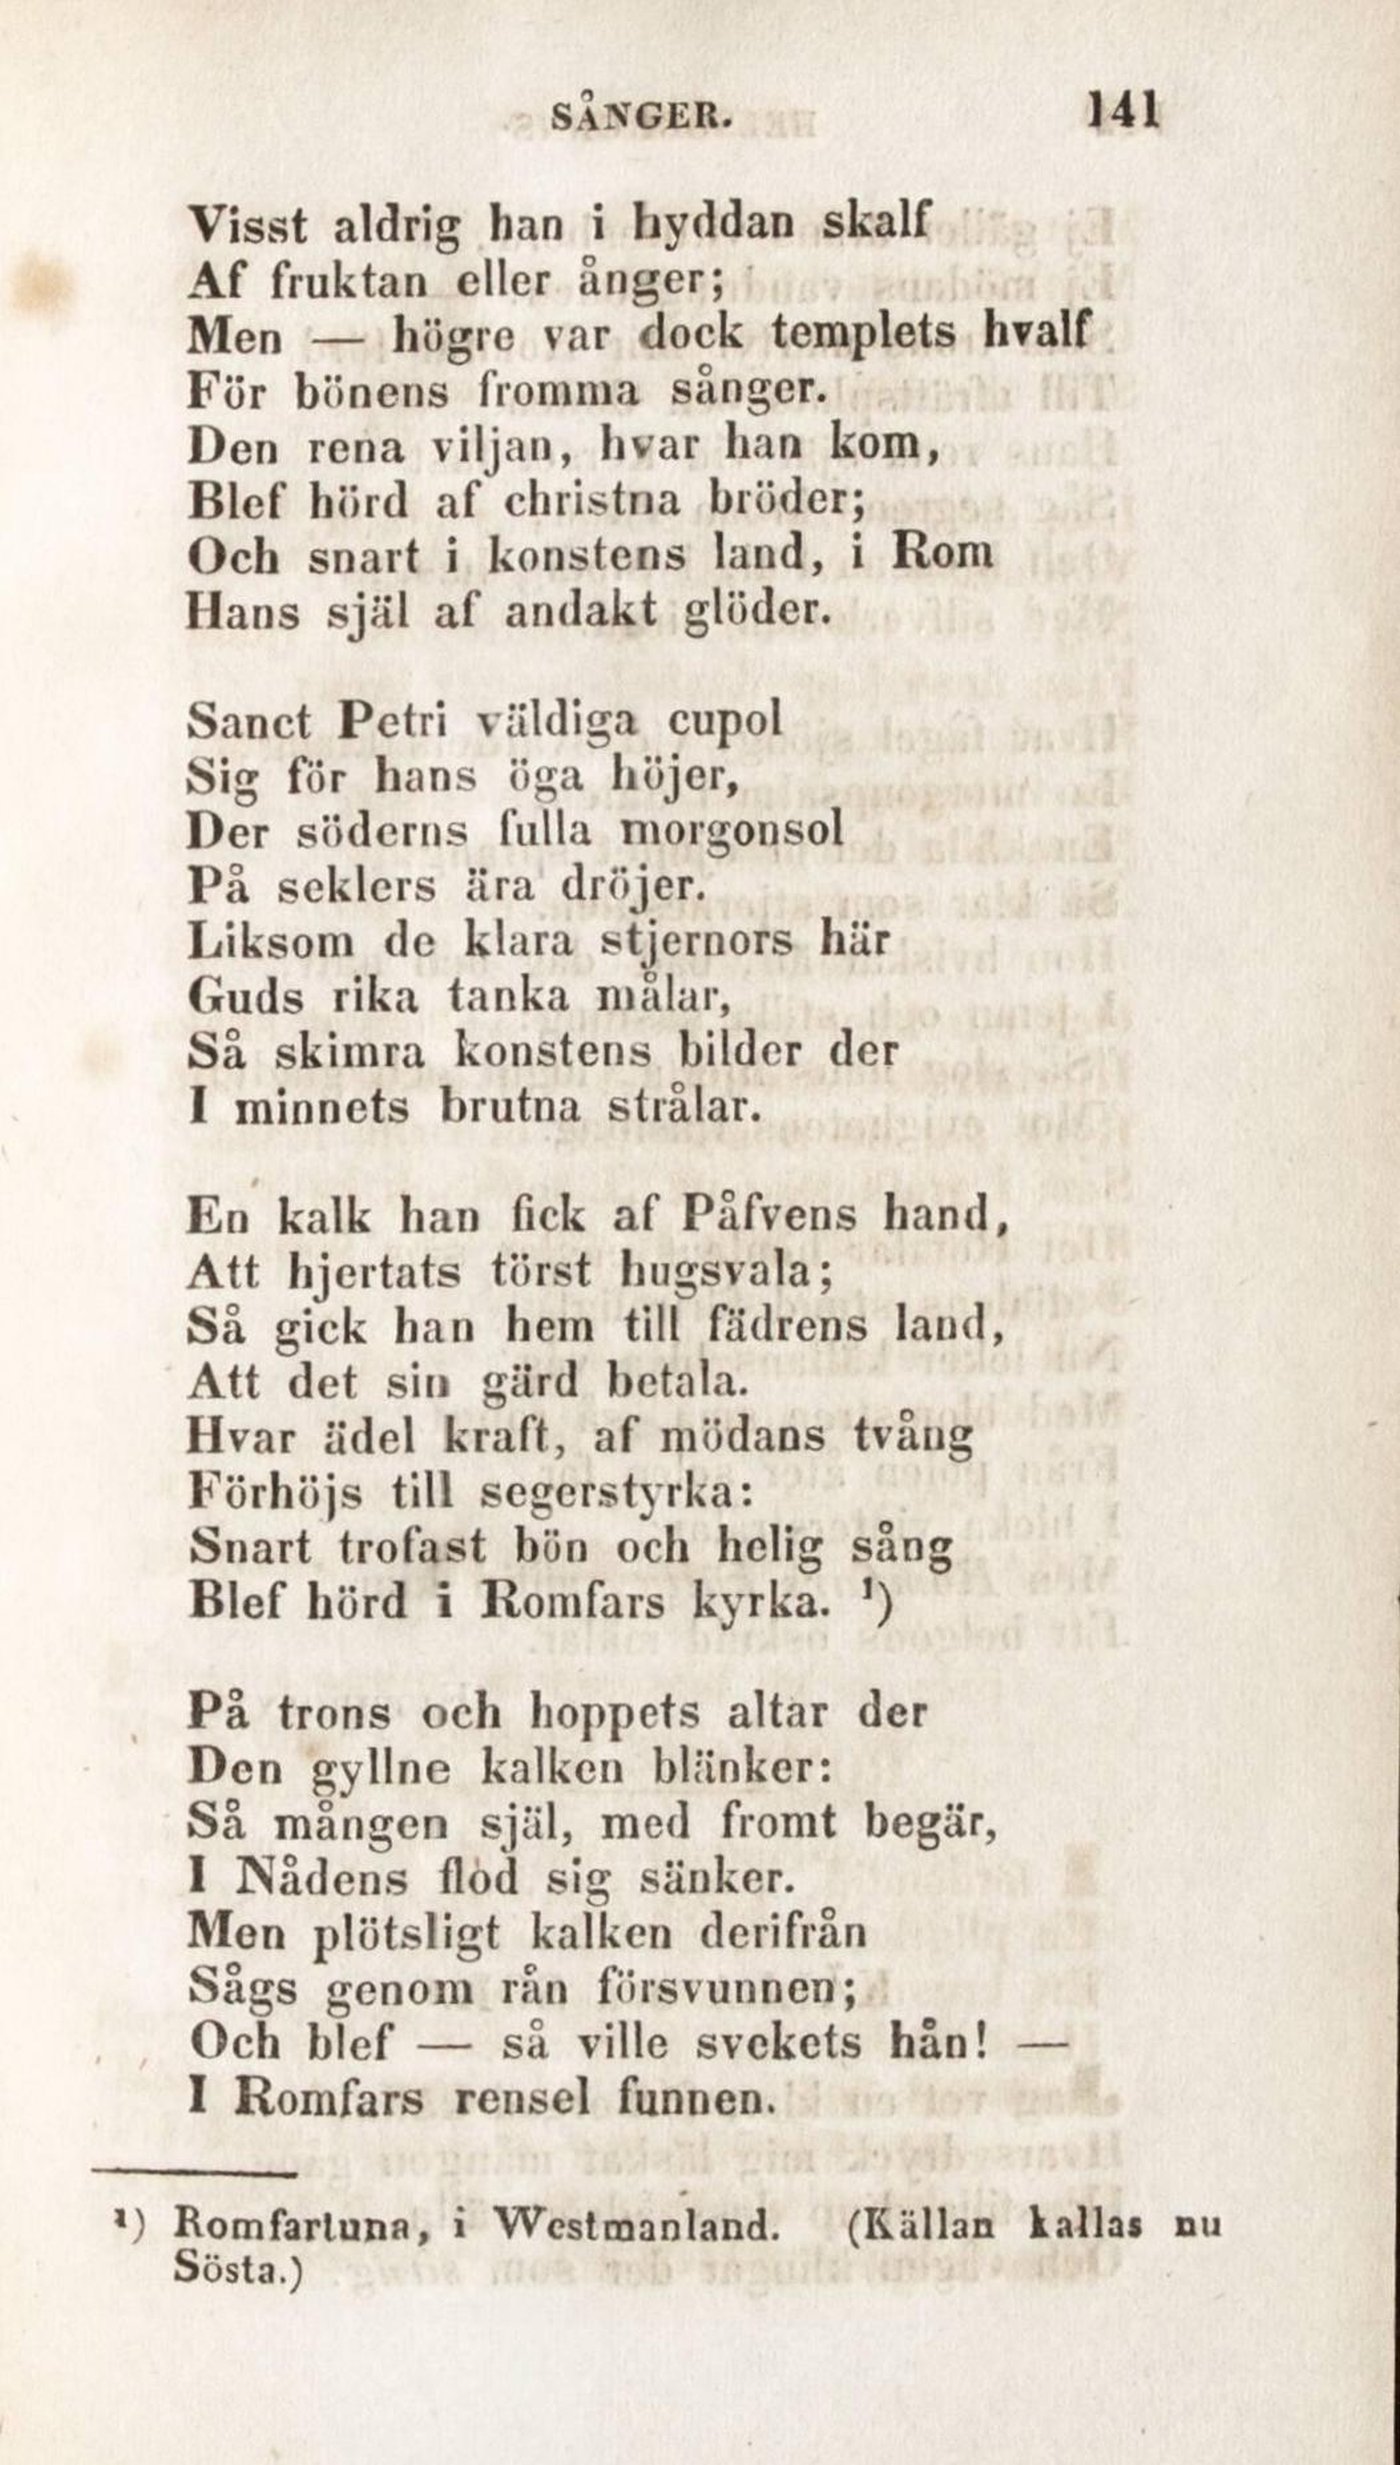 SÅNGER. 141
Visst aldrig han i hyddan skalf
Af fruktan eller ånger;
Men — högre var dock templets hvalf
För bönens fromma sånger.
Den rena viljan, hvar han kom,
Blef hörd af christna bröder;
Och snart i konstens land, i Rom
Hans själ af andakt glöder.
Sanct Petri väldiga cupol
Sig för hans öga höjer,
Der söderns fulla morgonsol
På seklers ära dröjer.
Liksom de klara stjernors här
Guds rika tanka målar,
Så skimra konstens bilder der
I minnets brutna strålar.
En kalk han fick af Påfvens hand,
Att hjertats törst hugsvala;
Så gick han hem till fädrens land,
Att det sin gärd betala.
Hvar ädel kraft, af mödans tvång
Förhöjs till segerstyrka:
Snart trofast bön och helig sång
Blef hörd i Romfars kyrka. ¹)
På trons och hoppets altar der
Den gyllne kalken blänker:
Så mången själ, med fromt begär,
I Nådens flod sig sänker.
Men plötsligt kalken derifrån
Sågs genom rån försvunnen;
Och blef — så ville svekets hån! —
I Romfars rensel funnen.
¹) Romfartuna, i Westmanland. (Källan kallas nu
Sösta.)